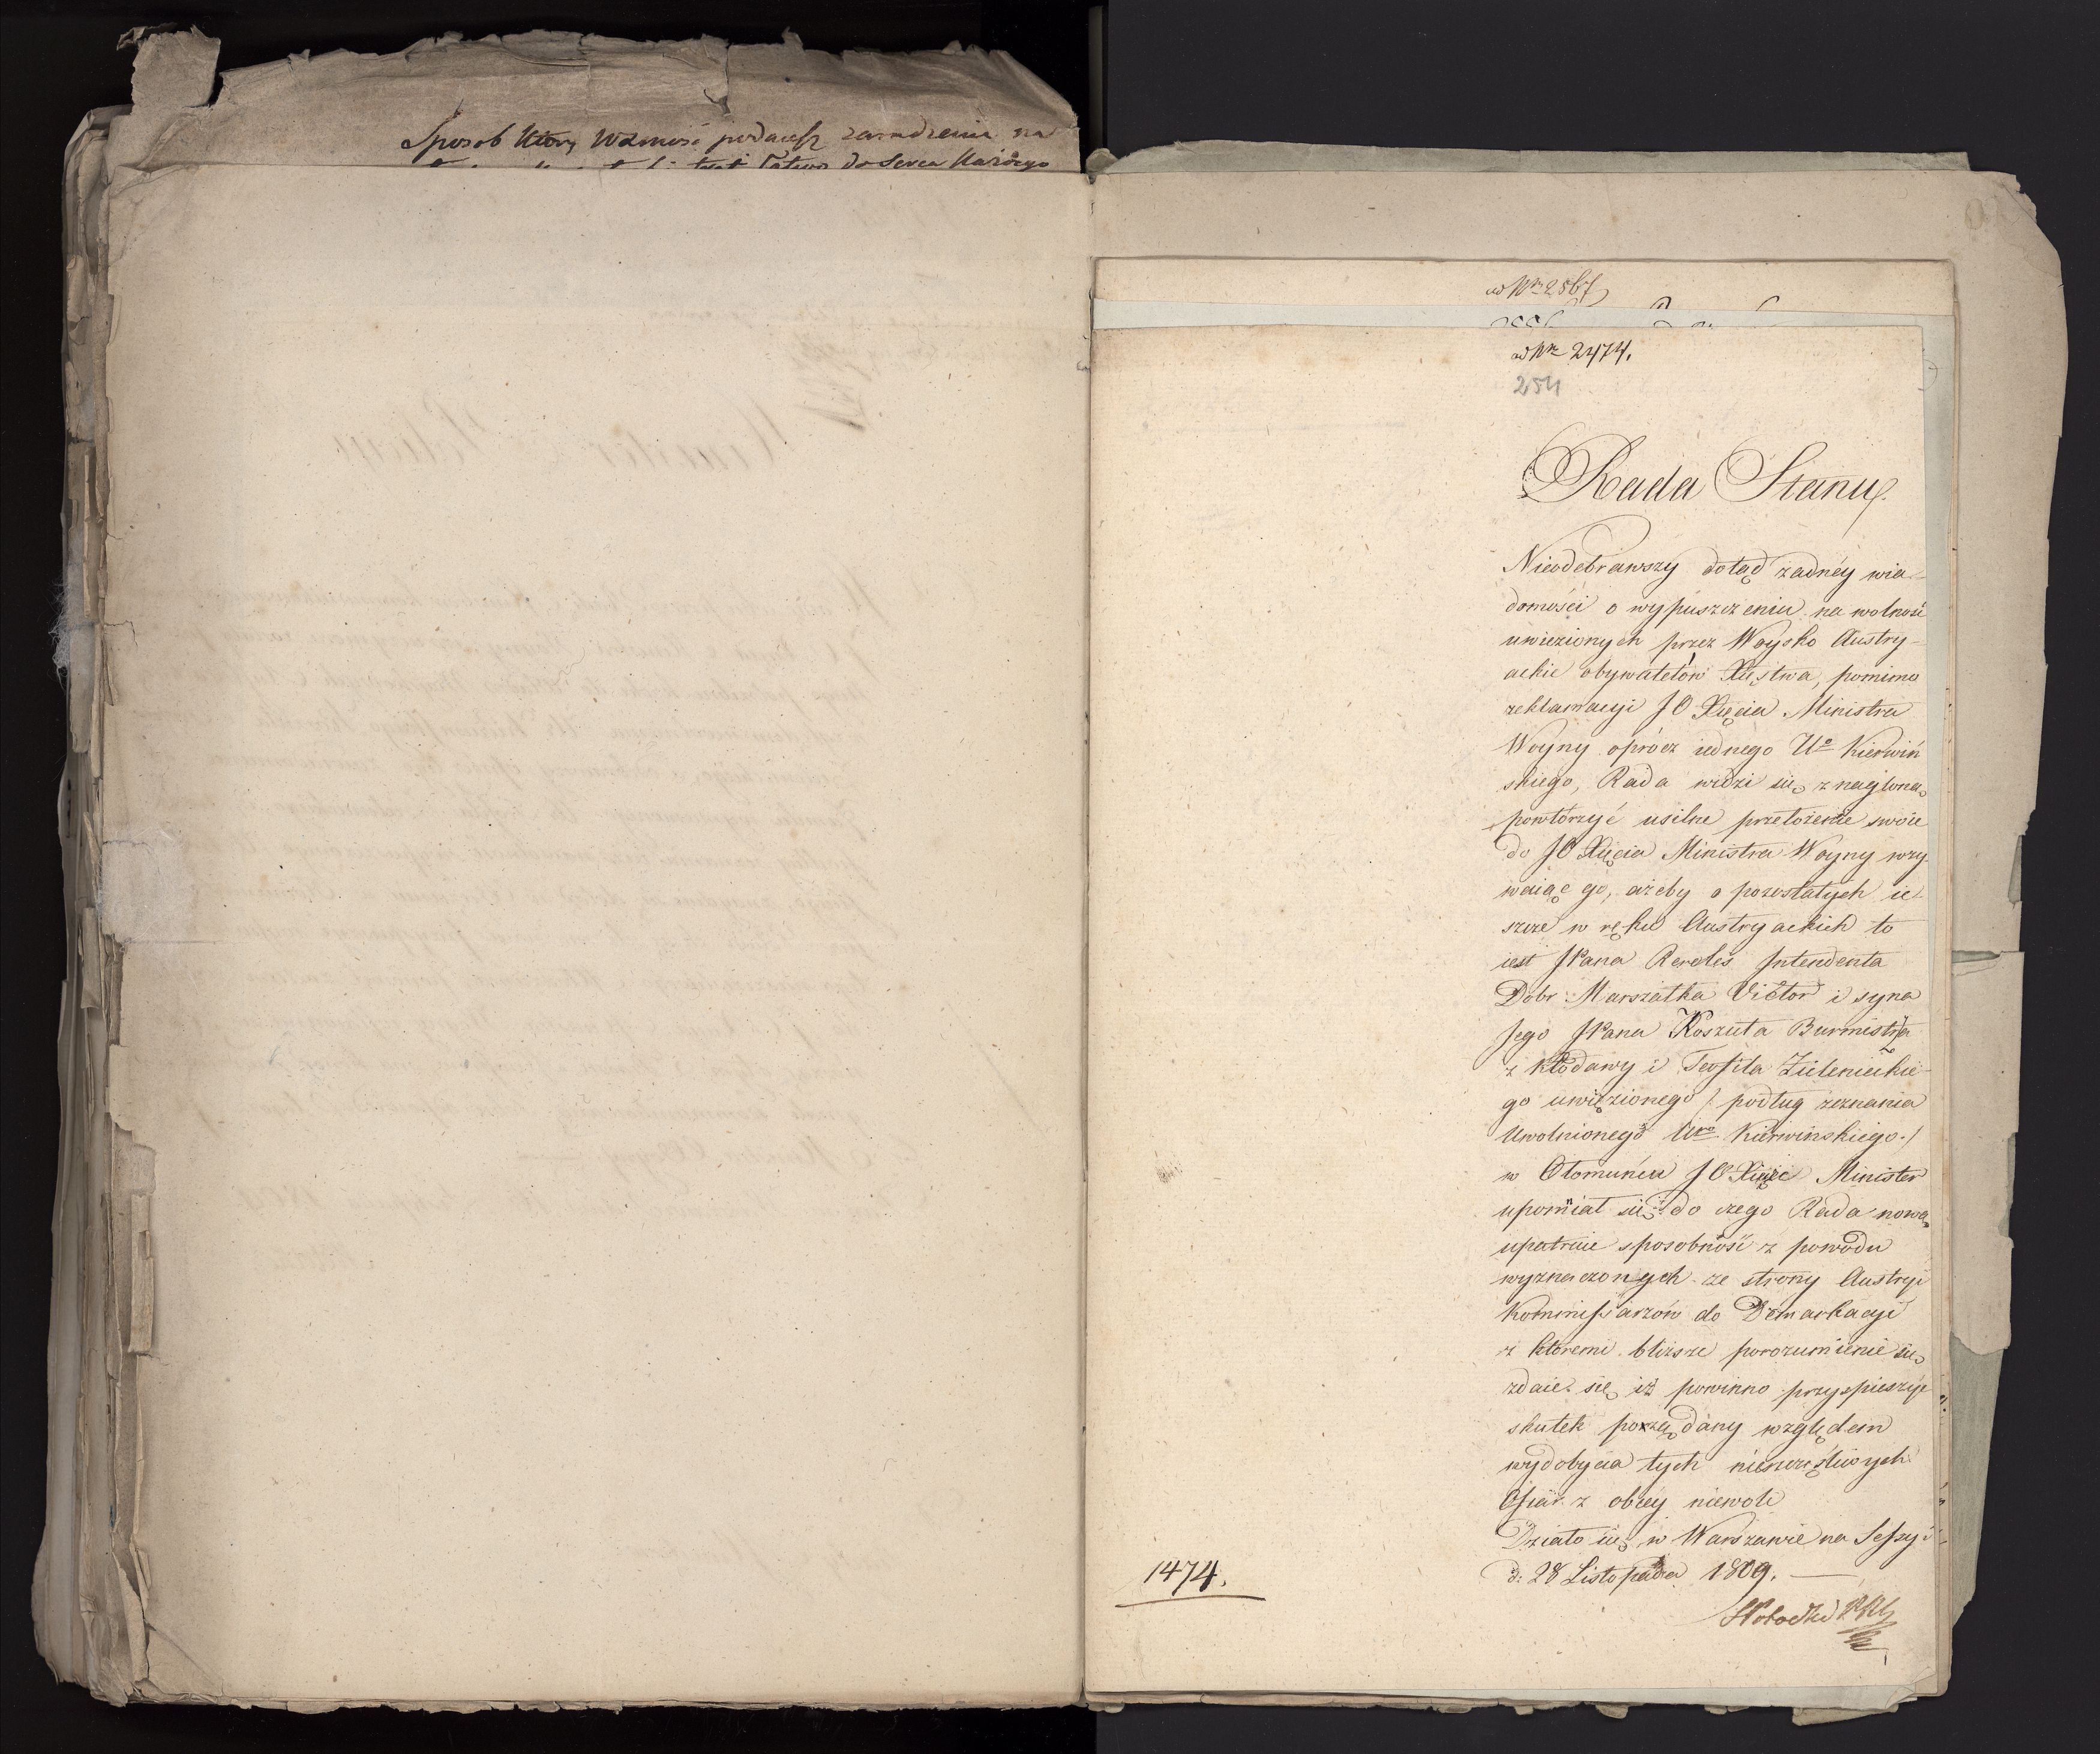 Sposob który Wzmość podaiesz zaradzenia na
do serca Każdego
ad Nr 2567
ad Nr 2474.
254
Rada Stanu.
Nieodebrawszy dotąd żadnéy wia-
domości o wypuszczeniu na wolność
uwięzionych przez Woysko Austry-
ackie obywatelów Xięstwa, pomimo
reklamacyi JO Xięcia Ministra
Woyny oprócz iednego Uo Kierwiń
skiego, Rada widzi się znaglona
powtórzyć usilne przełożenie swoie
do JO Xięcia Ministra Woyny wzy-
waiąc go, ażeby o pozostałych ie-
szcze w ręku Austryackich to
iest JPana Reroles Intendenta
Dóbr Marszałka Victor i syna
Jego JPana Koszuta Burmistrza
z Kłodawy i Teofila Zielenieckie-
go uwięzionego /: podług zeznania
Uwolnionego Uro Kierwinskiego :/
w Ołomuńcu JO Xiąże Minister
upomniał się: do czego Rada nową
upatruie sposobność z powodu
wyznaczonych ze strony Austryi
Kommissarzów do Demarkacyi
z któremi bliższe porozumienie się
zdaie się iż powinno przyspieszyć
skutek pożądany względem
wydobycia tych nieszczęśliwych
Ofiar z obcéy niewoli
Działo się w Warszawie na Sessyi
d: 28 Listopada 1809.
1474.